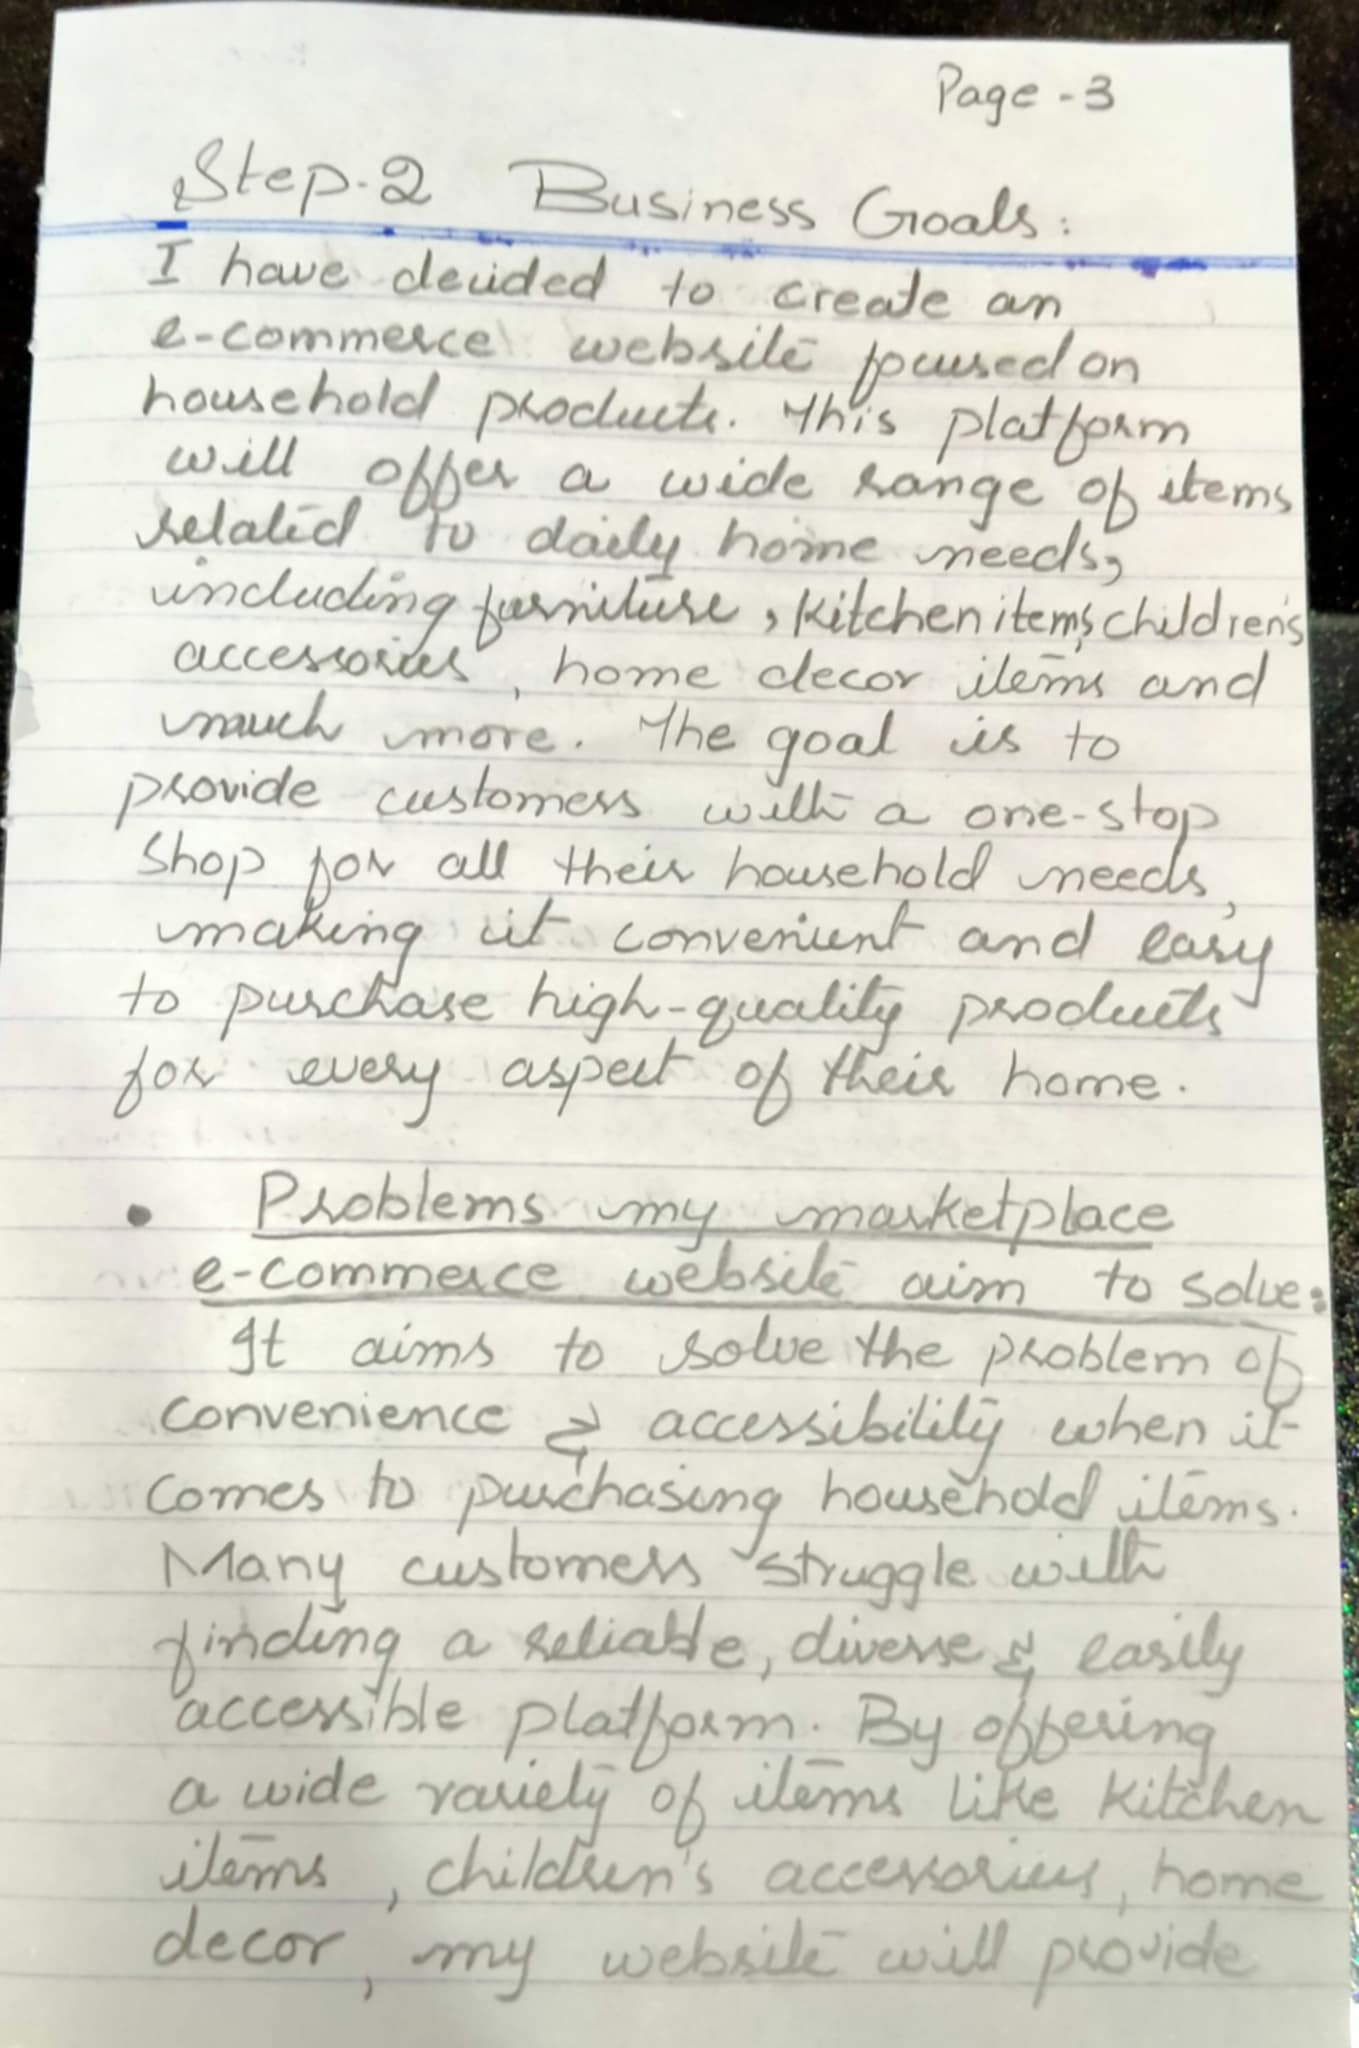 Page - 3
Step-2 Business Goals:
I have decided to create an
e-commerce website focused on
household products. This platform
will offer a wide range of items
related to daily home needs,
including furniture, kitchen items, children's
accessories, home decor items and
much more. The goal is to
provide customers with a one-stop
Shop for all their household needs,
making it convenient and easy
to purchase high-quality products
for every aspect of their home.
• Problems my marketplace
e-commerce website aim to solve:
It aims to solve the problem of
convenience & accessibility when it
comes to purchasing household items.
Many customers struggle with
finding a reliable, diverse & easily
accessible platform. By offering
a wide variety of items like kitchen
items, children's accessories, home
decor, my website will provide